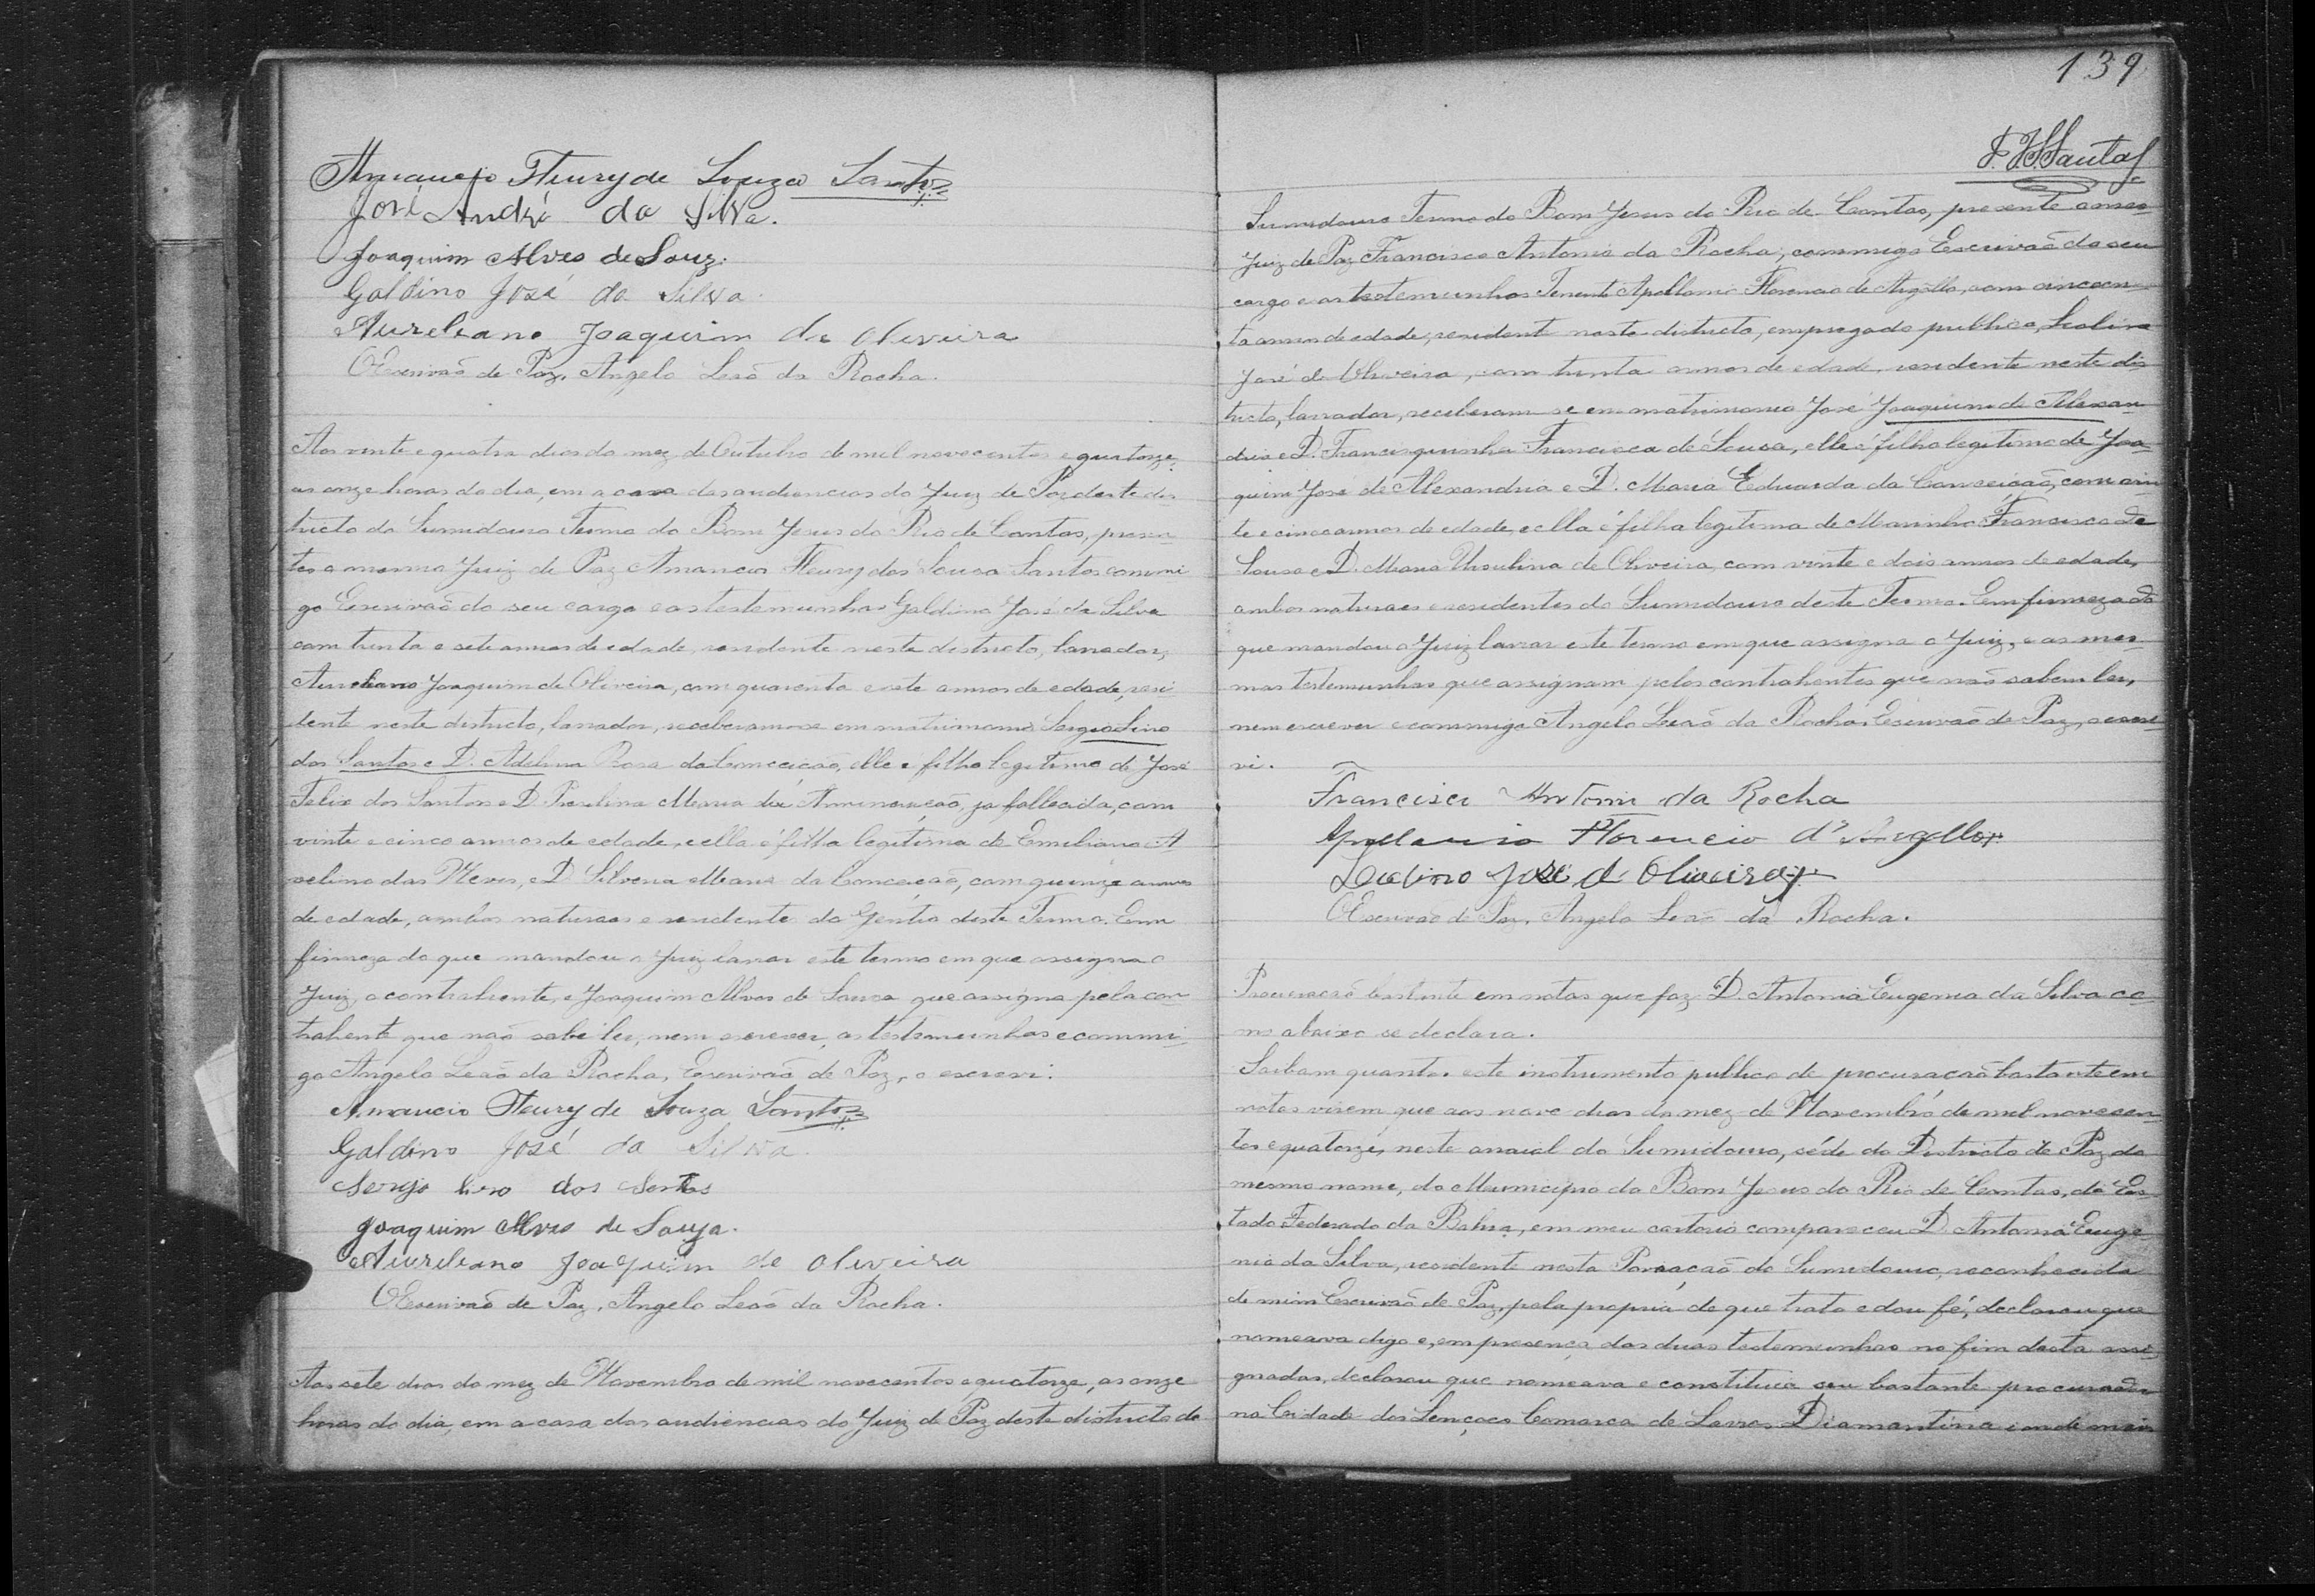 Amancio Fleury de Souza Santos
José André da Silva.
Joaquim Alves de Souz.
Galdino José da Silva.
Aureliano Joaquim de Oliveira
O Escrivão de Paz, Angelo Leão da Rocha.
Aos vente e quatro dias do mez de Outubro de mil novecentos e quatorze,
as onze horas do dia, em a casa das audiencias do Juiz de Paz deste dis-
tricto do Sumidouro Termo do Bom Jesus do Rio de Contas, presen-
tes o mesmo Juiz de Paz Amancio Fleury dos Sousa Santos commi
go Escrivão do seu cargo e as testemunhas Galdino José da Silva
com trinta e sete annos de edade, residente neste districto, lavrador,
Aureliano Joaquim de Oliveira, com quarenta e sete annos de edade, resi
dente neste districto, lavrador, receberam-se em matrimonio Sergio Lino
dos Santos e D. Adelina Rosa da Conceição, elle é filho legitimo de José
Felix dos Santos e D. Maria da Annunciação, ja fallecida, com
vinte e cinco annos de edade, e ella é filha legitima de Emiliano A
velino das Neves, e D. Silveria Maria da Conceição, com quinze annos
de edade, ambos naturaes e residente do Gentio deste Termo. Em
firmeza do que mandou o Juiz lavrar este termo em que assigna o
Juiz, o contrahente, e Joaquim Alves de Sousa que assigna pela con-
trahente que não sabe ler, nem escrever, as testemunhas e commi-
go Angelo Leão da Rocha, Escrivão de Paz, o escrevi.
Amancio Fleury de Souza Santos
Galdino José da Silva.
Sergio Lino dos Santos
Joaquim Alves de Souza.
Aureliano Joaquim de Oliveira
O Escrivão de Paz, Angelo Leão da Rocha.
Aos sete dias do mez de Novembro de mil novecentos e quatorze, as onze
horas do dia, em a casa das audiencias do Juiz de Paz deste districto do
139
Santos
Sumidouro Termo do Bom Jesus do Rio de Contas, presente o mesmo
Juiz de Paz Francisco Antonio da Rocha, commigo Escrivão do seu
cargo e as testemunhas Tenente Apollonio Florencio de Argollo, com cincoen-
ta annos de edade, residente neste districto, empregado publico,
José de Oliveira, com trinta annos de edade, residente neste dis-
tricto, lavrador, receberam-se em matrimonio José Joaquim de Alexan-
dria e D. Francisquinha Francisca de Sousa, elle é filho legitimo de Joa-
quim José de Alexandria e D. Maria Eduarda da Conceição, com vin-
te e cinco annos de edade, e ella é filha legitima de Marinho Francisco de
Sousa e D. Maria Ursulina de Oliveira, com vinte e dois annos de edade,
ambos naturaes e residentes do Sumidouro deste Termo. Em firmeza do
que mandou o Juiz lavrar este termo em que assigna o Juiz, e as mes-
mas testemunhas que assignam pelos contrahentes que não sabem ler,
nem escrever e commigo Angelo Leão da Rocha, Escrivão de Paz, o escre-
vi.
Francisco Antonio da Rocha
Apollonio Florencio d'Argollo
José de Oliveira
O Escrivão de Paz, Angelo Leão da Rocha.
Procuração bastante em notas que faz D. Antonia Eugenia da Silva co-
mo abaixo se declara.
Saibam quantos este instrumento publico de procuração bastante em
notas virem que aos nove dias do mez de Novembro de mil novecen-
tos e quatorze, neste arraial do Sumidouro, séde do Districto de Paz do
mesmo nome, do Municipio do Bom Jesus do Rio de Contas, do Es-
tado Federado da Bahia, em meu cartorio compareceu D. Antonia Euge-
nia da Silva, residente nesta Povoação do Sumidouro, reconhecida
de mim Escrivão de Paz, pela propria de que trato e dou fé, declarou que
nomeava digo e, em presença das duas testemunhas no fim desta assi-
gnadas, declarou que nomeava e constituia seu bastante procurador
na Cidade dos Lençoes Comarca de Lavras Diamantina e onde mais